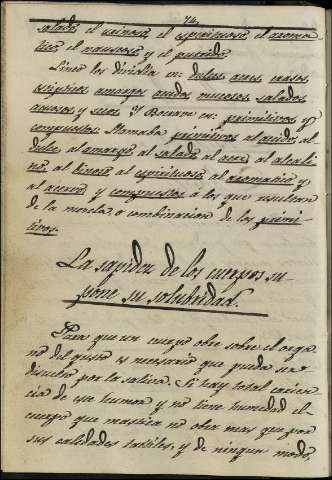 72
salado, el vinoso, el espirituoso el aroma
tico el nauseoso y el putrido.
Lineo los dividia en: dulces acres, crasos,
stipticos amargos acidos, mucosos, salados,
acuosos y secos. Y Boerave en: primitivos y
compuestos. Llamaba primitivos al acido, al
dulce, al amargo, al salado, al acre, al alcali
no, al vinoso, al espirituoso, al aromatico y
al acerbo y compuestos a los que resultan
de la mezcla o combinacion de los primi-
tivos.
La sapidez de los cuerpos su
pone su solubridad.
Para que un cuerpo obre sobre el orga
no del gusto es necesario que pueda ser
disuelto por la saliva. Si hay total caren
cia de este humor y no tiene humedad el
cuerpo que mastica no obra mas que por
sus calidades tactiles, y de ningun modo,